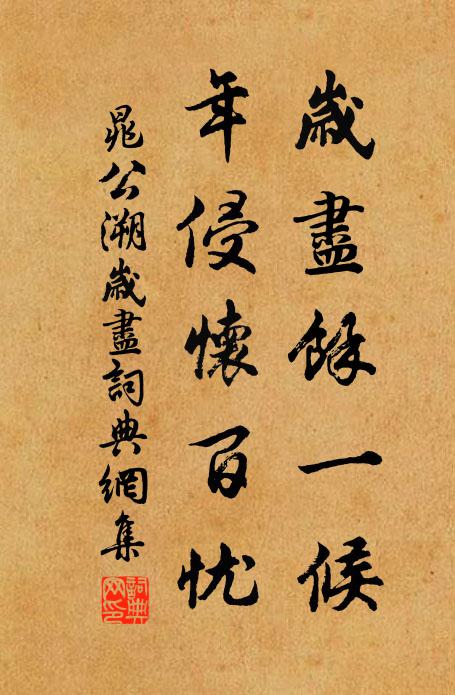 歲盡餘一候
年侵懷百忧
晁公溯歲盡詞典網集
詞典网印